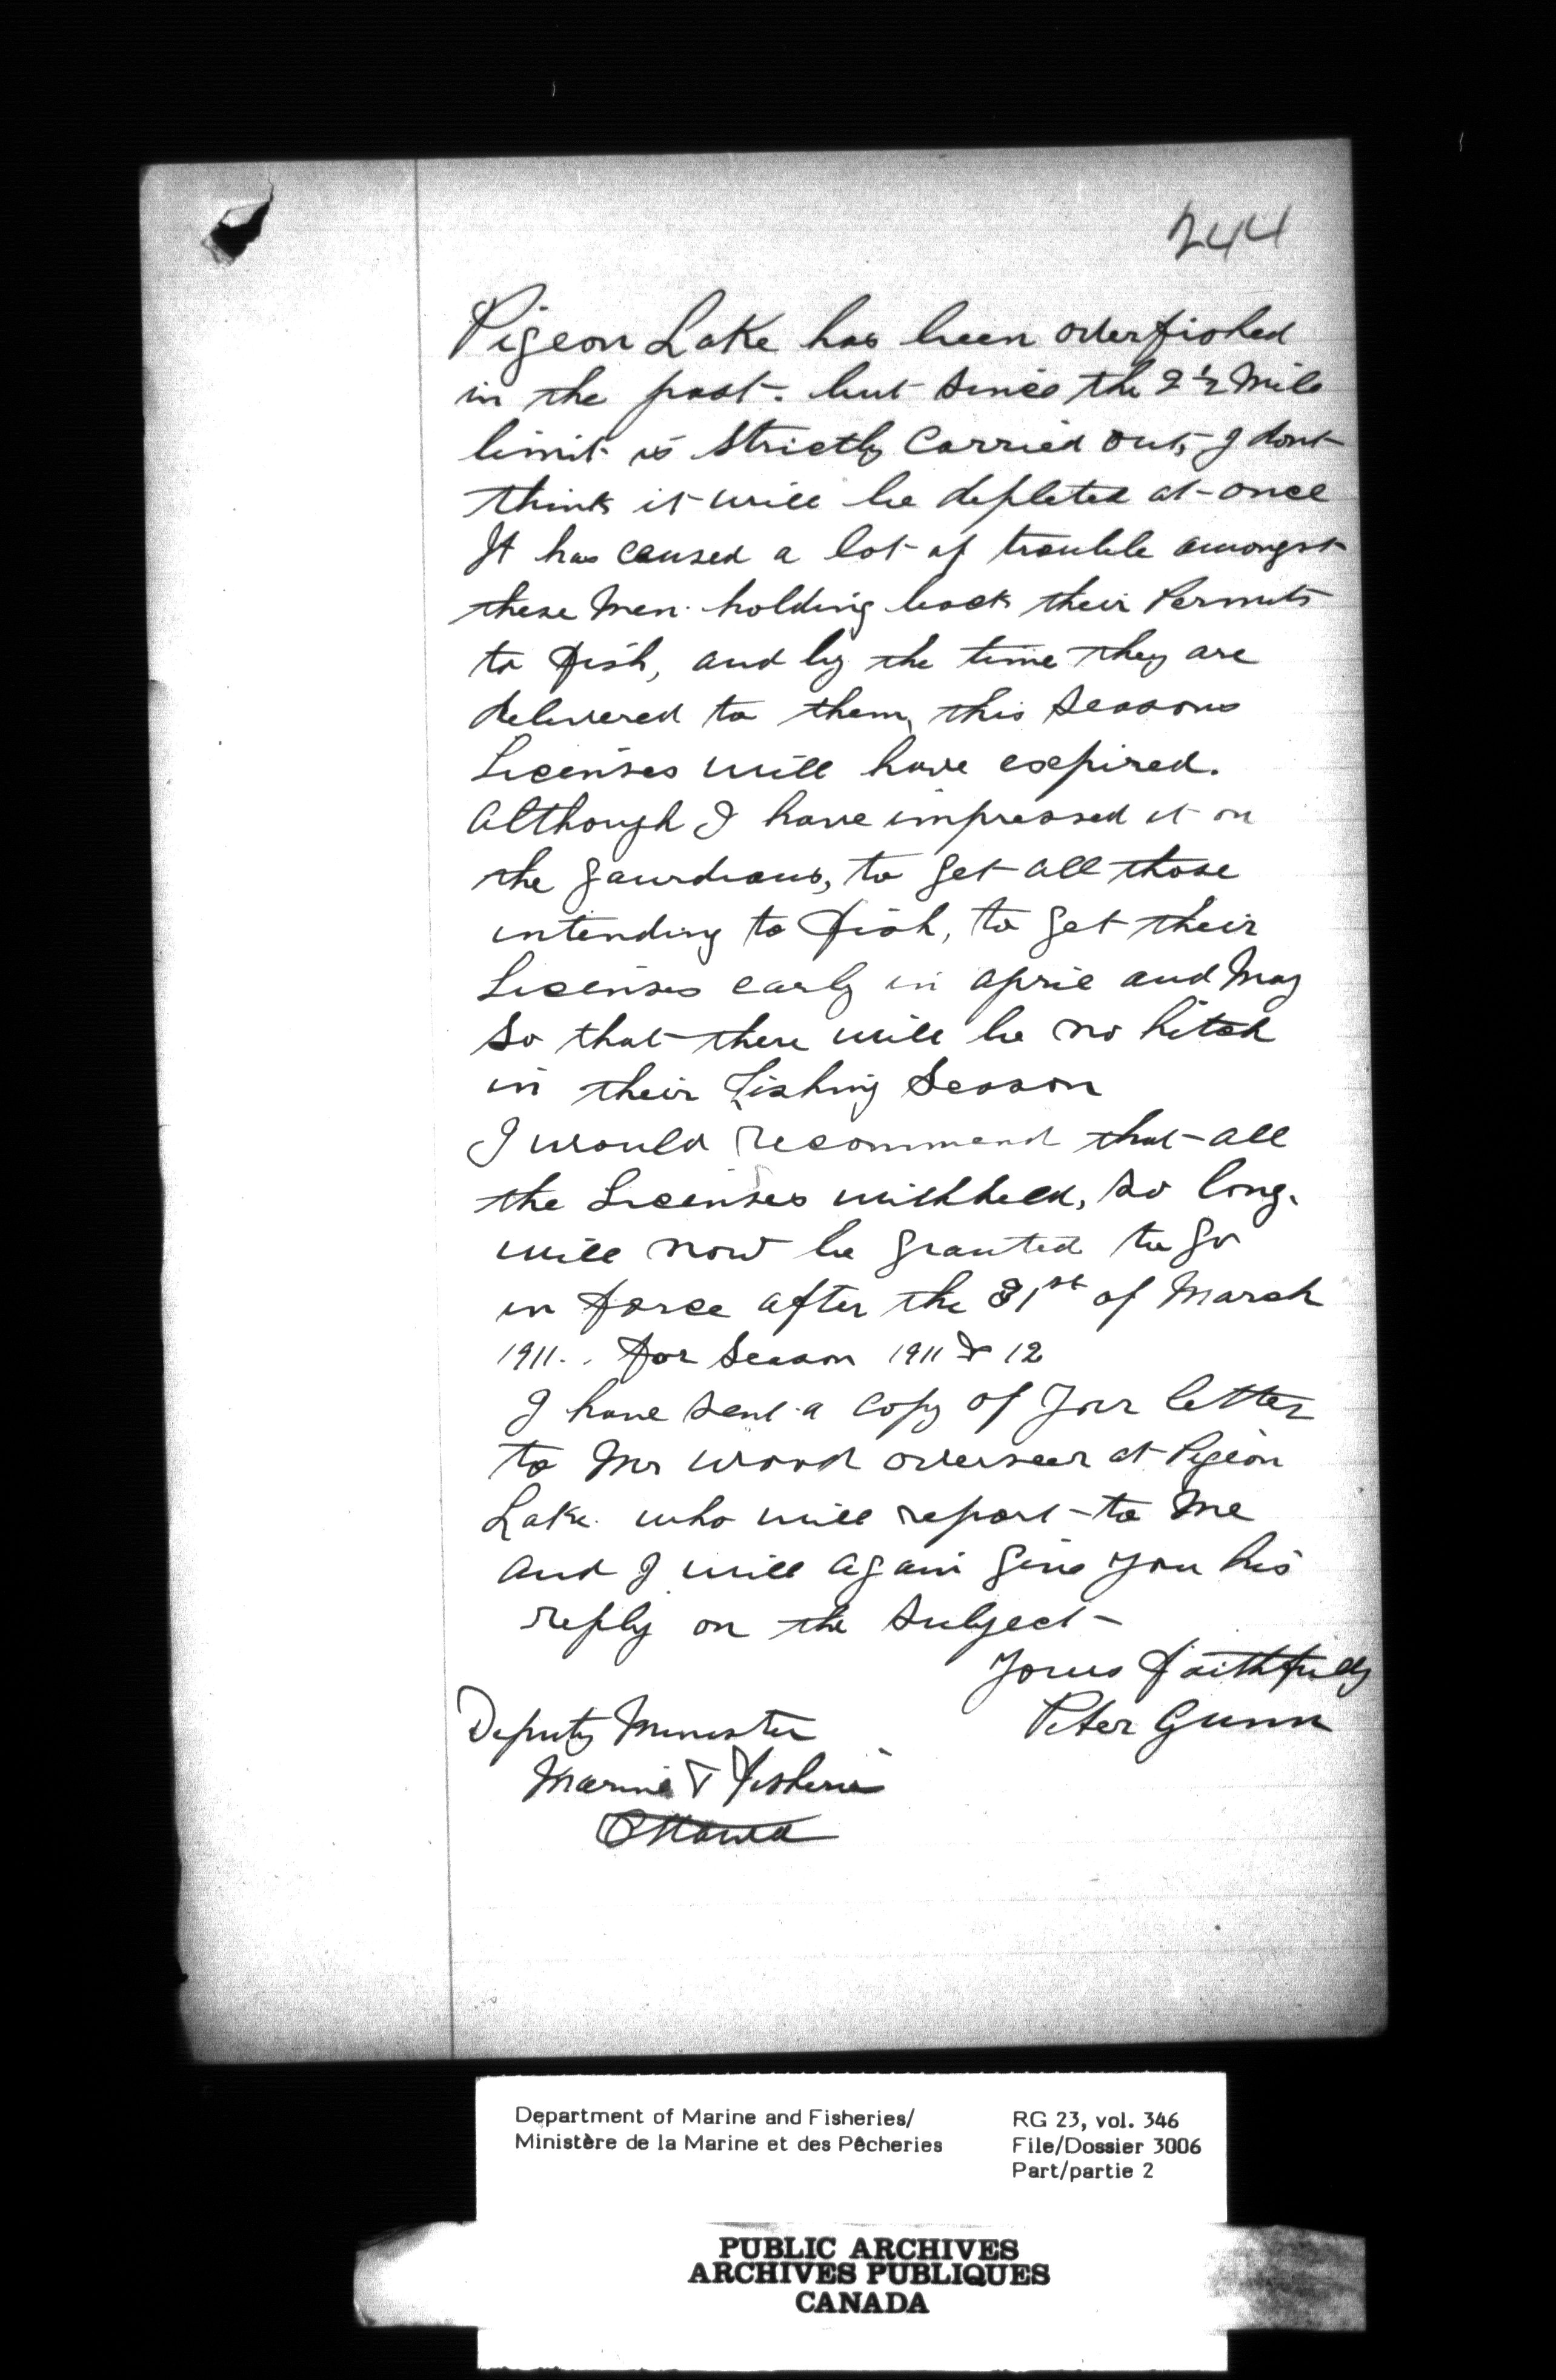 244
Pigeon Lake has been overfished
in the past. but since the 2 1/2 Mile
limit is Strictly Carried out, I dont
think it will be depleted at once
It has caused a lot of trouble amongst
these Men holding back their Permits
to fish, and by the time they are
delivered to them, this Seasons
Licenses will have expired.
Although I have impressed it on
the gaurdians, to get all those
intending to fish, to get their
Licenses early in April and May
So that there will be no hitch
in their Fishing Season
I would recommend that all
the Licenses withheld, so long.
will now be granted to go
in force after the 31st of March
1911. . for Season 1911 & 12
I have sent a Copy of Your letter
to Mr Wood overseer at Pigeon
Lake. who will report to Me
and I will again give you his
reply on the Subject
Yours faithfully
Peter Gunn
Deputy Minister
Marine & Fisheries
Ottawa
Department of Marine and Fisheries/
Ministère de la Marine et des Pêcheries
RG 23, vol. 346
File/Dossier 3006
Part/partie 2
PUBLIC ARCHIVES
ARCHIVES PUBLIQUES
CANADA